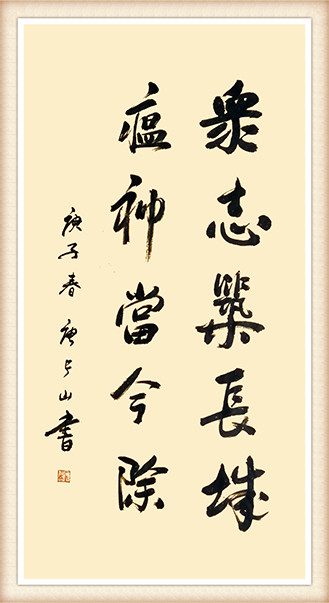 衆志築長城
瘟神當今除
庚子春 唐 山書